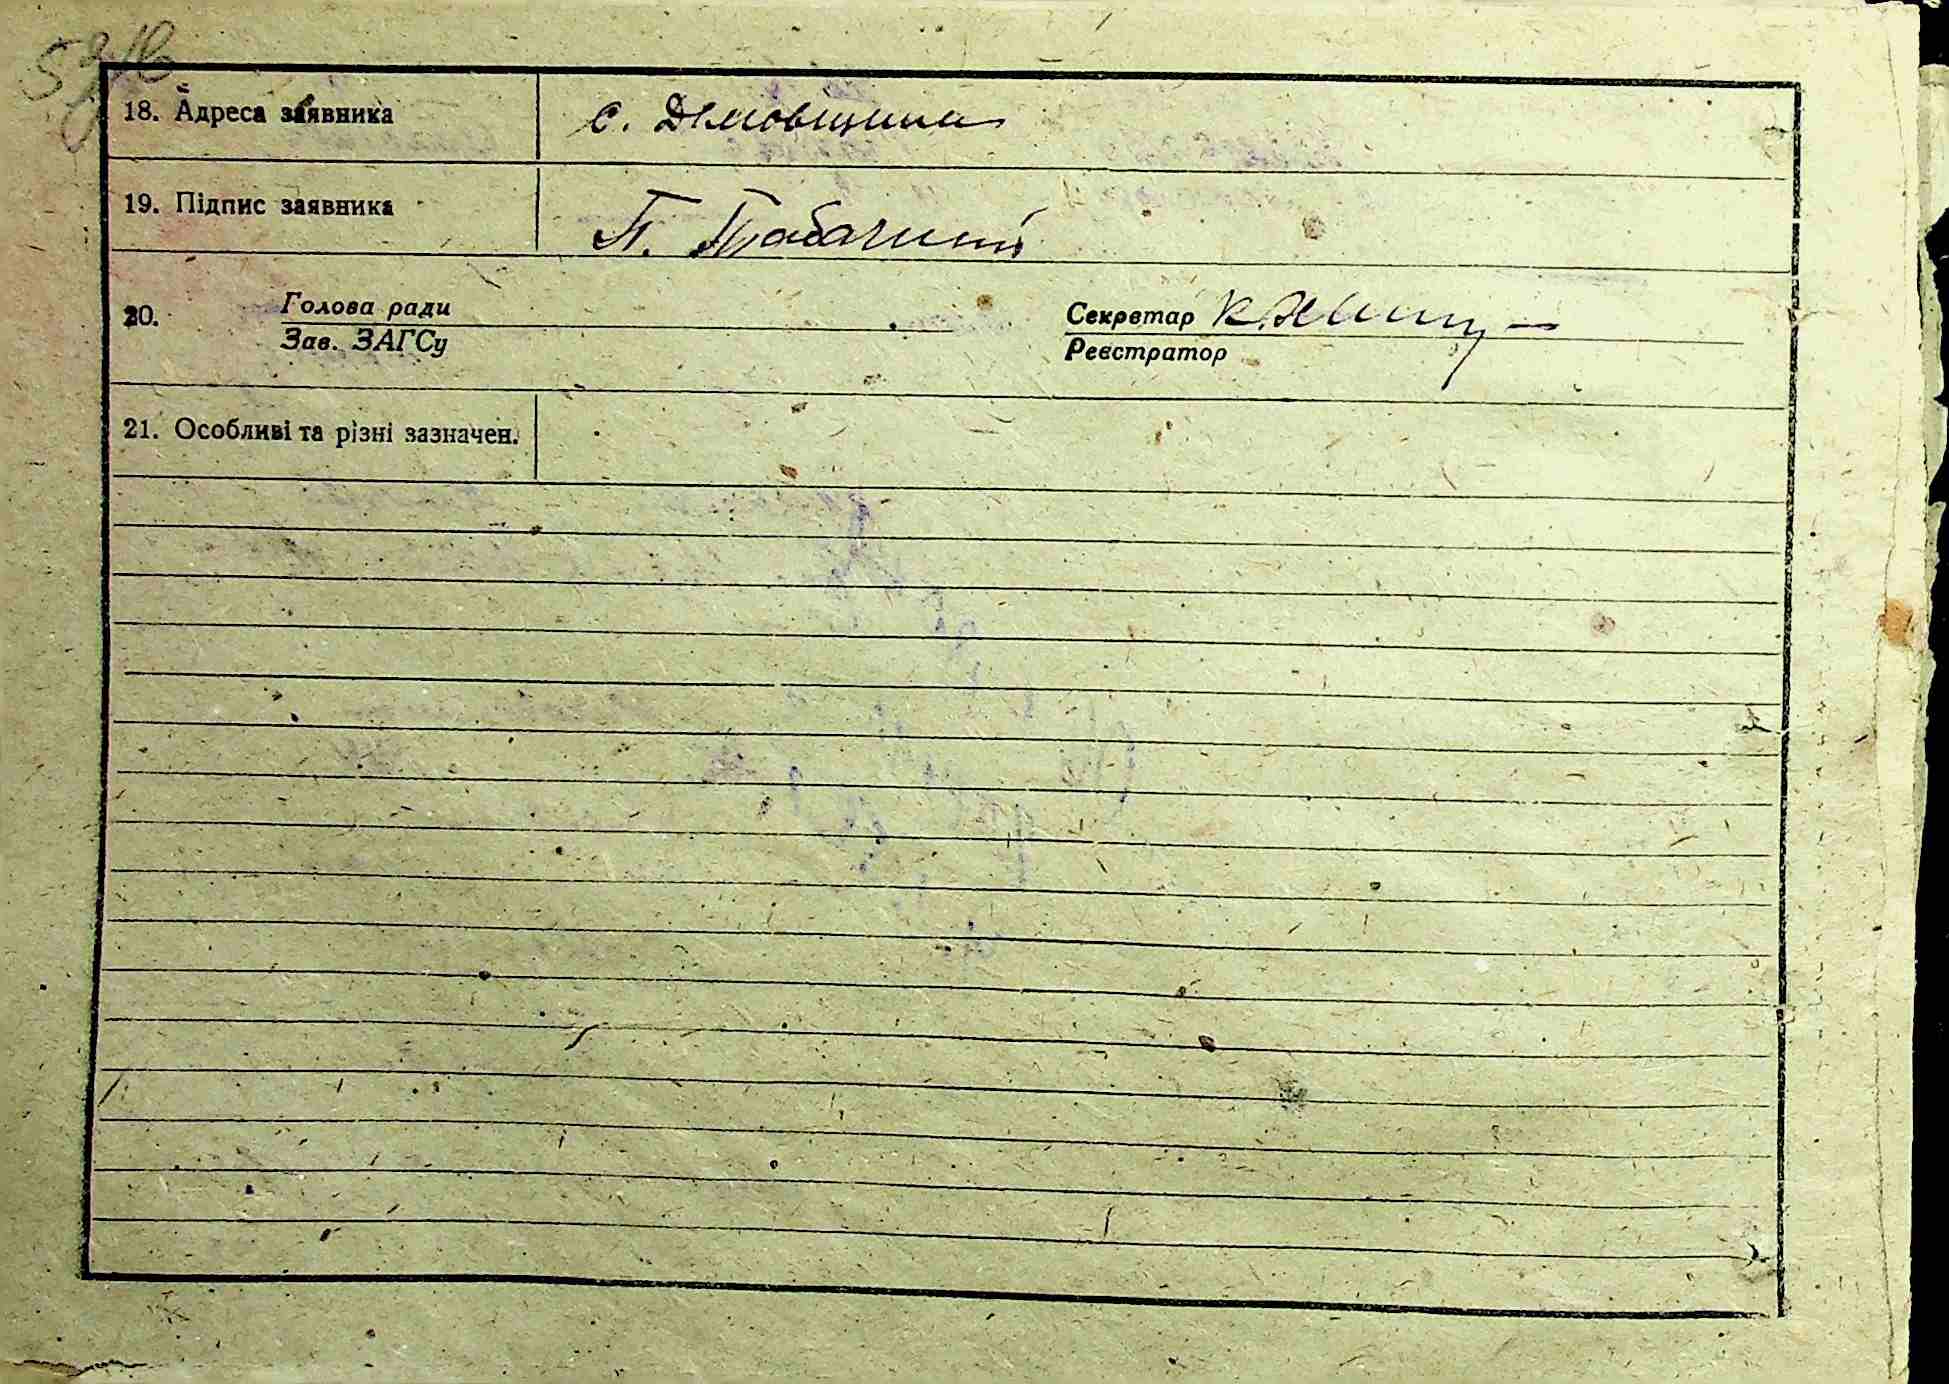 18. Адреса заявника с. Демовщина
19. Підпис заявника П. Табачний
20. Голова ради Секретар
Зав. ЗАГСу Реєстратор
21. Особливі та різні зазначен.